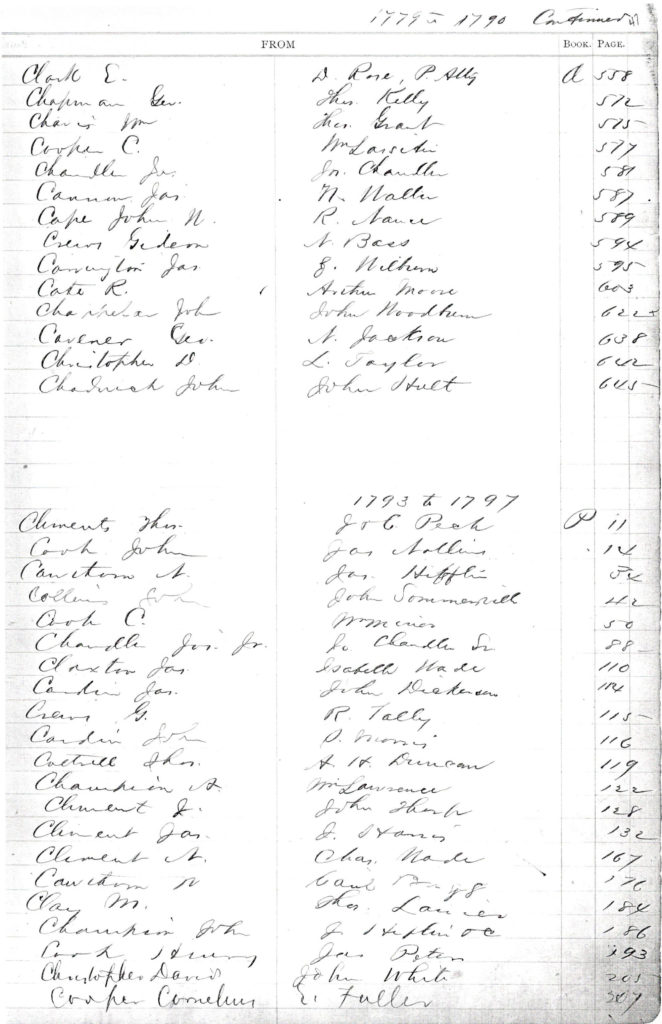 1779 to 1790 Continued
FROM BOOK. PAGE.
Clark E. D. Rose, P Atty A 558
Chapman Geo. Thos. Kelly 572
Chavis Wm Thos. Grant 575
Cooper C. Wm Lassiter 577
Chandler Jos. Jos. Chandler 581
Cannon Jas N. Waller 587
Cape John N. R. Nance 589
Crews Gideon N. Bass 594
Carrington Jas 595
Cate R. Arthur Moore 603
John John Woodburn 622
Cavener Geo. N. Jackson 638
Christopher D L. Taylor 642
Chadwick John John Hult 645
1793 to 1797
Clements Thos. Peck P 11
Cook John Jas Nollins 14
Cawthorn N. Jas. Hefflin 34
Collins John John Sommervill 42
Cook C. Wm 50
Chandler Jos. Jr. Jo Chandler Sr 88
Claxton Jas. Isabella Wade 110
Cardin Jas. John Dickerson 114
Crews G. R. Tally 115
Cardin John D. Morris 116
Cottrell Thos. A. H. Duncan 119
Champion A. Wm Lawrence 122
Clement J. John Tharp 128
Clement Jas. J. Harris 132
Clement N. Chas. Wade 167
Cawthorn N 176
Clay M. Thos. Lanier 184
Champion John J. Heflin 186
Cook Henry Jas Peters 193
Christopher David John White 205
Cooper Cornelius E. Fuller 207